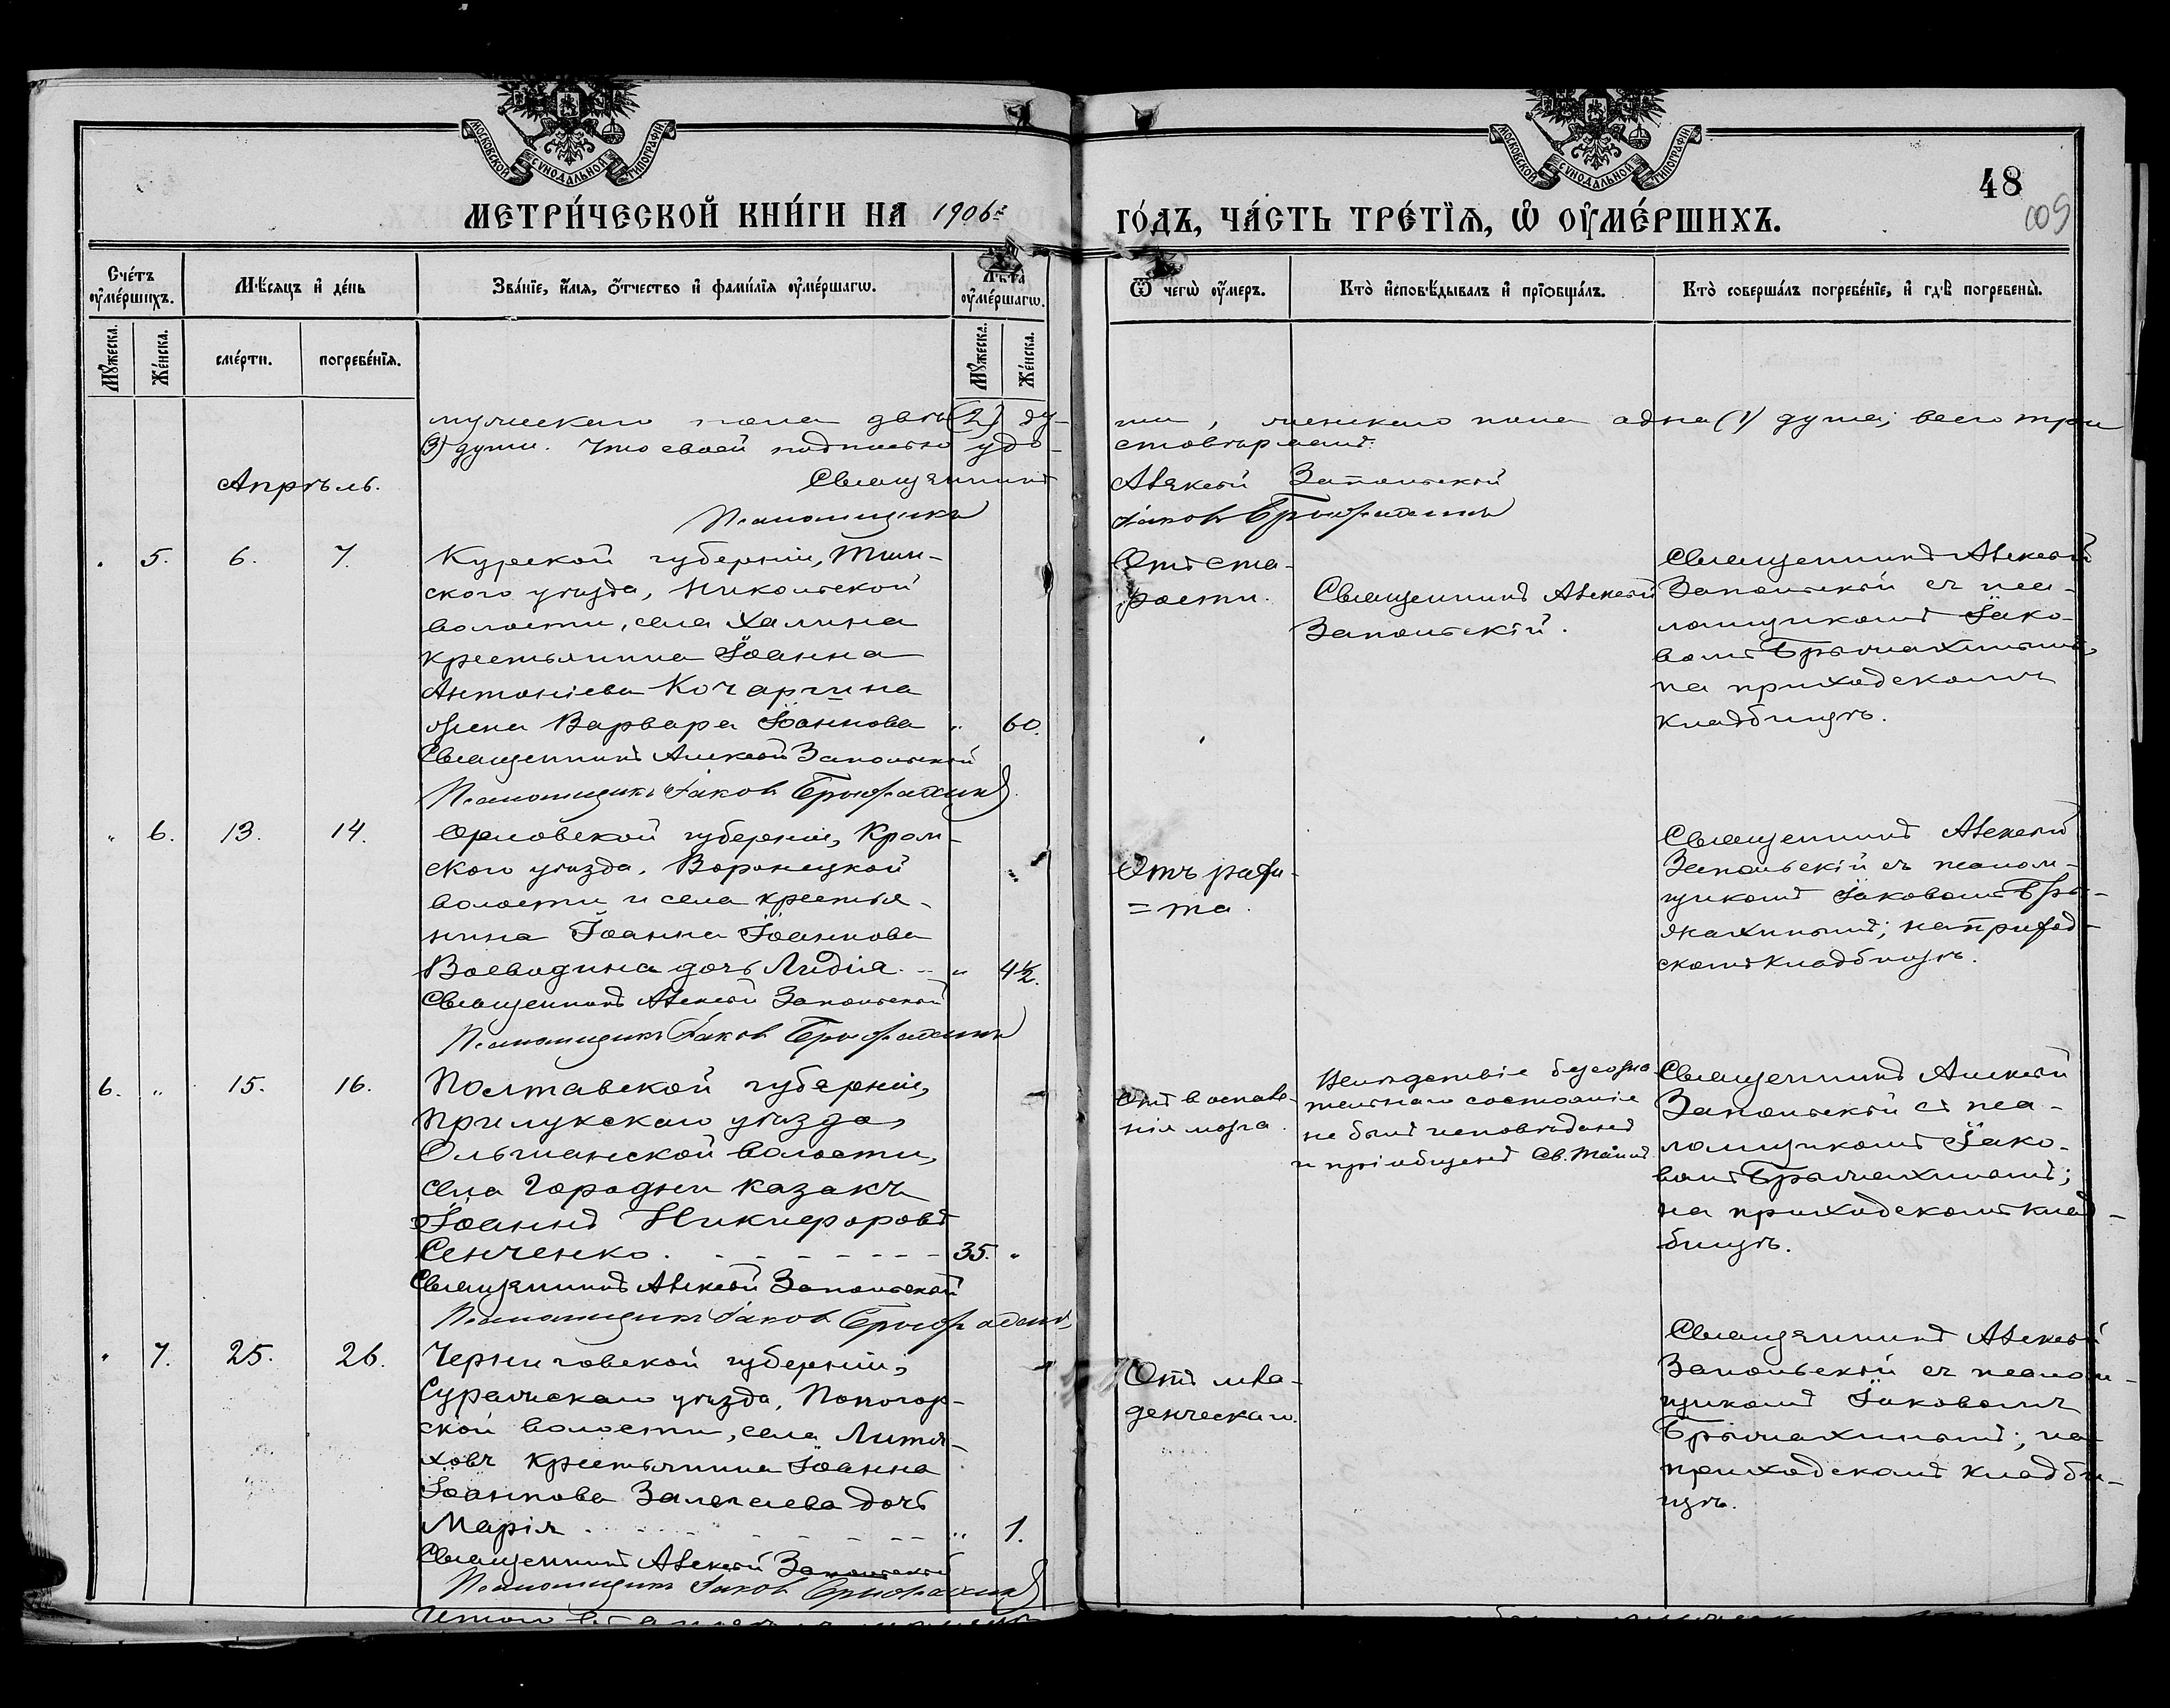 МОСКОВСКОЙ СУНОДАЛЬНОЙ ТИПОГРАФІИ
МОСКОВСКОЙ СУНОДАЛЬНОЙ ТИПОГРАФІИ
48
МЕТРИ́ЧЕСКОЙ КНИ́ГИ НА 1906 г.
ГО́ДЪ, ЧА́СТЬ ТРЕ́ТЇѦ, Ѡ҆ ОУ҆МЕ́РШИХЪ.
Сче́тъ оу҆ме́ршихъ.
Мѣ́сяцъ и҆ де́нь
Зва́нїе, и҆́мя, ѻ҆́тчество и҆ фами́лїя оу҆ме́ршагѡ.
Лѣ́та оу҆ме́ршагѡ.
Ѿ чегѡ̀ оу҆́меръ.
Кто̀ и҆сповѣ́дывалъ и҆ прїѻбща́лъ.
Кто̀ соверша́лъ погребе́нїе, и҆ гдѣ̀ погребены̀.
Мꙋ́жеска.
Же́нска.
сме́рти.
погребе́нїя.
Мꙋ́жеска.
Же́нска.
мужескаго пола двѣ (2) ду-
ши, женскаго пола одна (1) душа; всего три
(3) души. Что своей подписью удо-
стовѣряемъ:
Апрѣль.
Священникъ
Алексѣй Запольскій
Псаломщикъ
Іаковъ Брыжахинъ
" 5. 6. 7.
Курской губерніи, Тим-
ского уѣзда, Никольской
волости, села Халина
крестьянина Іоанна
Антоніева Кочаргина
жена Варвара Іоаннова " 60.
Священникъ Алексѣй Запольскій
Псаломщикъ Іаковъ Брыжахинъ
Отъ ста-
рости.
Священникъ Алексѣй
Запольскій.
Священникъ Алексѣй
Запольскій съ пса-
ломщикомъ Іако-
вомъ Брыжахинымъ,
на приходскомъ
кладбищѣ.
" 6. 13. 14.
Орловской губерніи, Кром-
ского уѣзда, Воронецкой
волости и села крестья-
нина Іоанна Іоаннова
Воеводина дочь Лидія. " 4½.
Священникъ Алексѣй Запольскій
Псаломщикъ Іаковъ Брыжахинъ
Отъ рахи-
=та.
Священникъ Алексѣй
Запольскій съ псалом-
щикомъ Іаковомъ Бры-
жахинымъ; на приход-
скомъ кладбищѣ.
6. " 15. 16.
Полтавской губерніи,
Прилукскаго уѣзда,
Ольшанской волости,
села Городни казакъ
Іоаннъ Никифоровъ
Сенченко. - - - - - - - 35. "
Священникъ Алексѣй Запольскій
Псаломщикъ Іаковъ Брыжахинъ
Отъ воспале-
нія мозга.
Вслѣдствіе безсозна-
тельнаго состоянія
не былъ исповѣданъ
и пріобщенъ Св. Таинъ.
Священникъ Алексѣй
Запольскій съ пса-
ломщикомъ Іако-
вомъ Брыжахинымъ;
на приходскомъ клад-
бищѣ.
" 7. 25. 26.
Черниговской губерніи,
Суражскаго уѣзда, Попогор-
ской волости, села Лотя-
ховъ крестьянина Іоанна
Іоаннова дочь
Марія - - - - - - " 1.
Священникъ Алексѣй Запольскій
Псаломщикъ Іаковъ Брыжахинъ
Отъ мла-
денческаго.
Священникъ Алексѣй
Запольскій съ псалом-
щикомъ Іаковомъ
Брыжахинымъ; на
приходскомъ кладби-
щѣ.